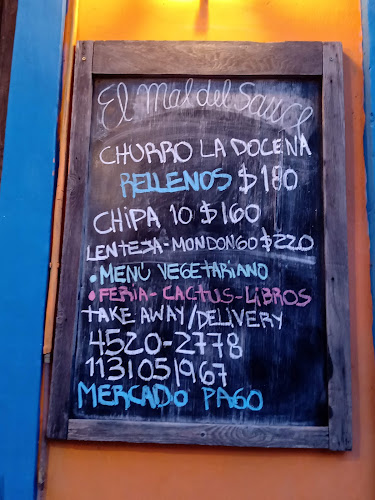 El Mal del Sauce
CHURRO LA DOCENA
RELLENOS $180
CHIPA 10 $160
LENTEJA-MONDONGO $220
• MENÚ VEGETARIANO
• FERIA-CACTUS-LIBROS
TAKE AWAY/DELIVERY
4520-2778
1131051967
MERCADO PAGO